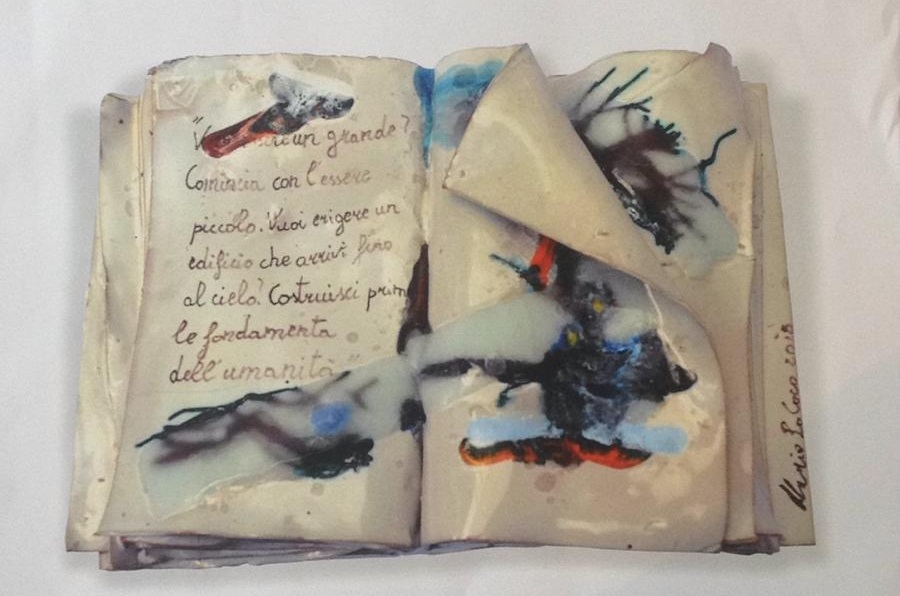 "V un grande?
Comincia con l'essere
piccolo. Vuoi erigere un
edificio che arrivi fino
al cielo? Costruisci prim
le fondamenta
dell'umanità"